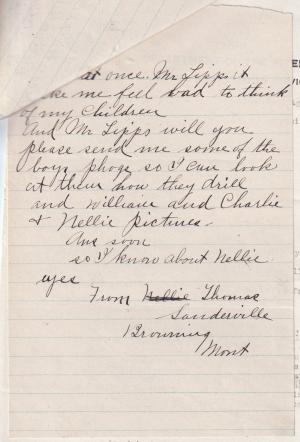 at once. Mr Lipps it
me feel bad to think
of my children
and Mr Lipps will you
please send me some of the
boys phogr so I can look
at them how they drill
and william and Charlie
& Nellie pictures.
Ans soon
so I know about Nellie
eyes
From Nellie Thomas
Sanderville
Browning
Mont